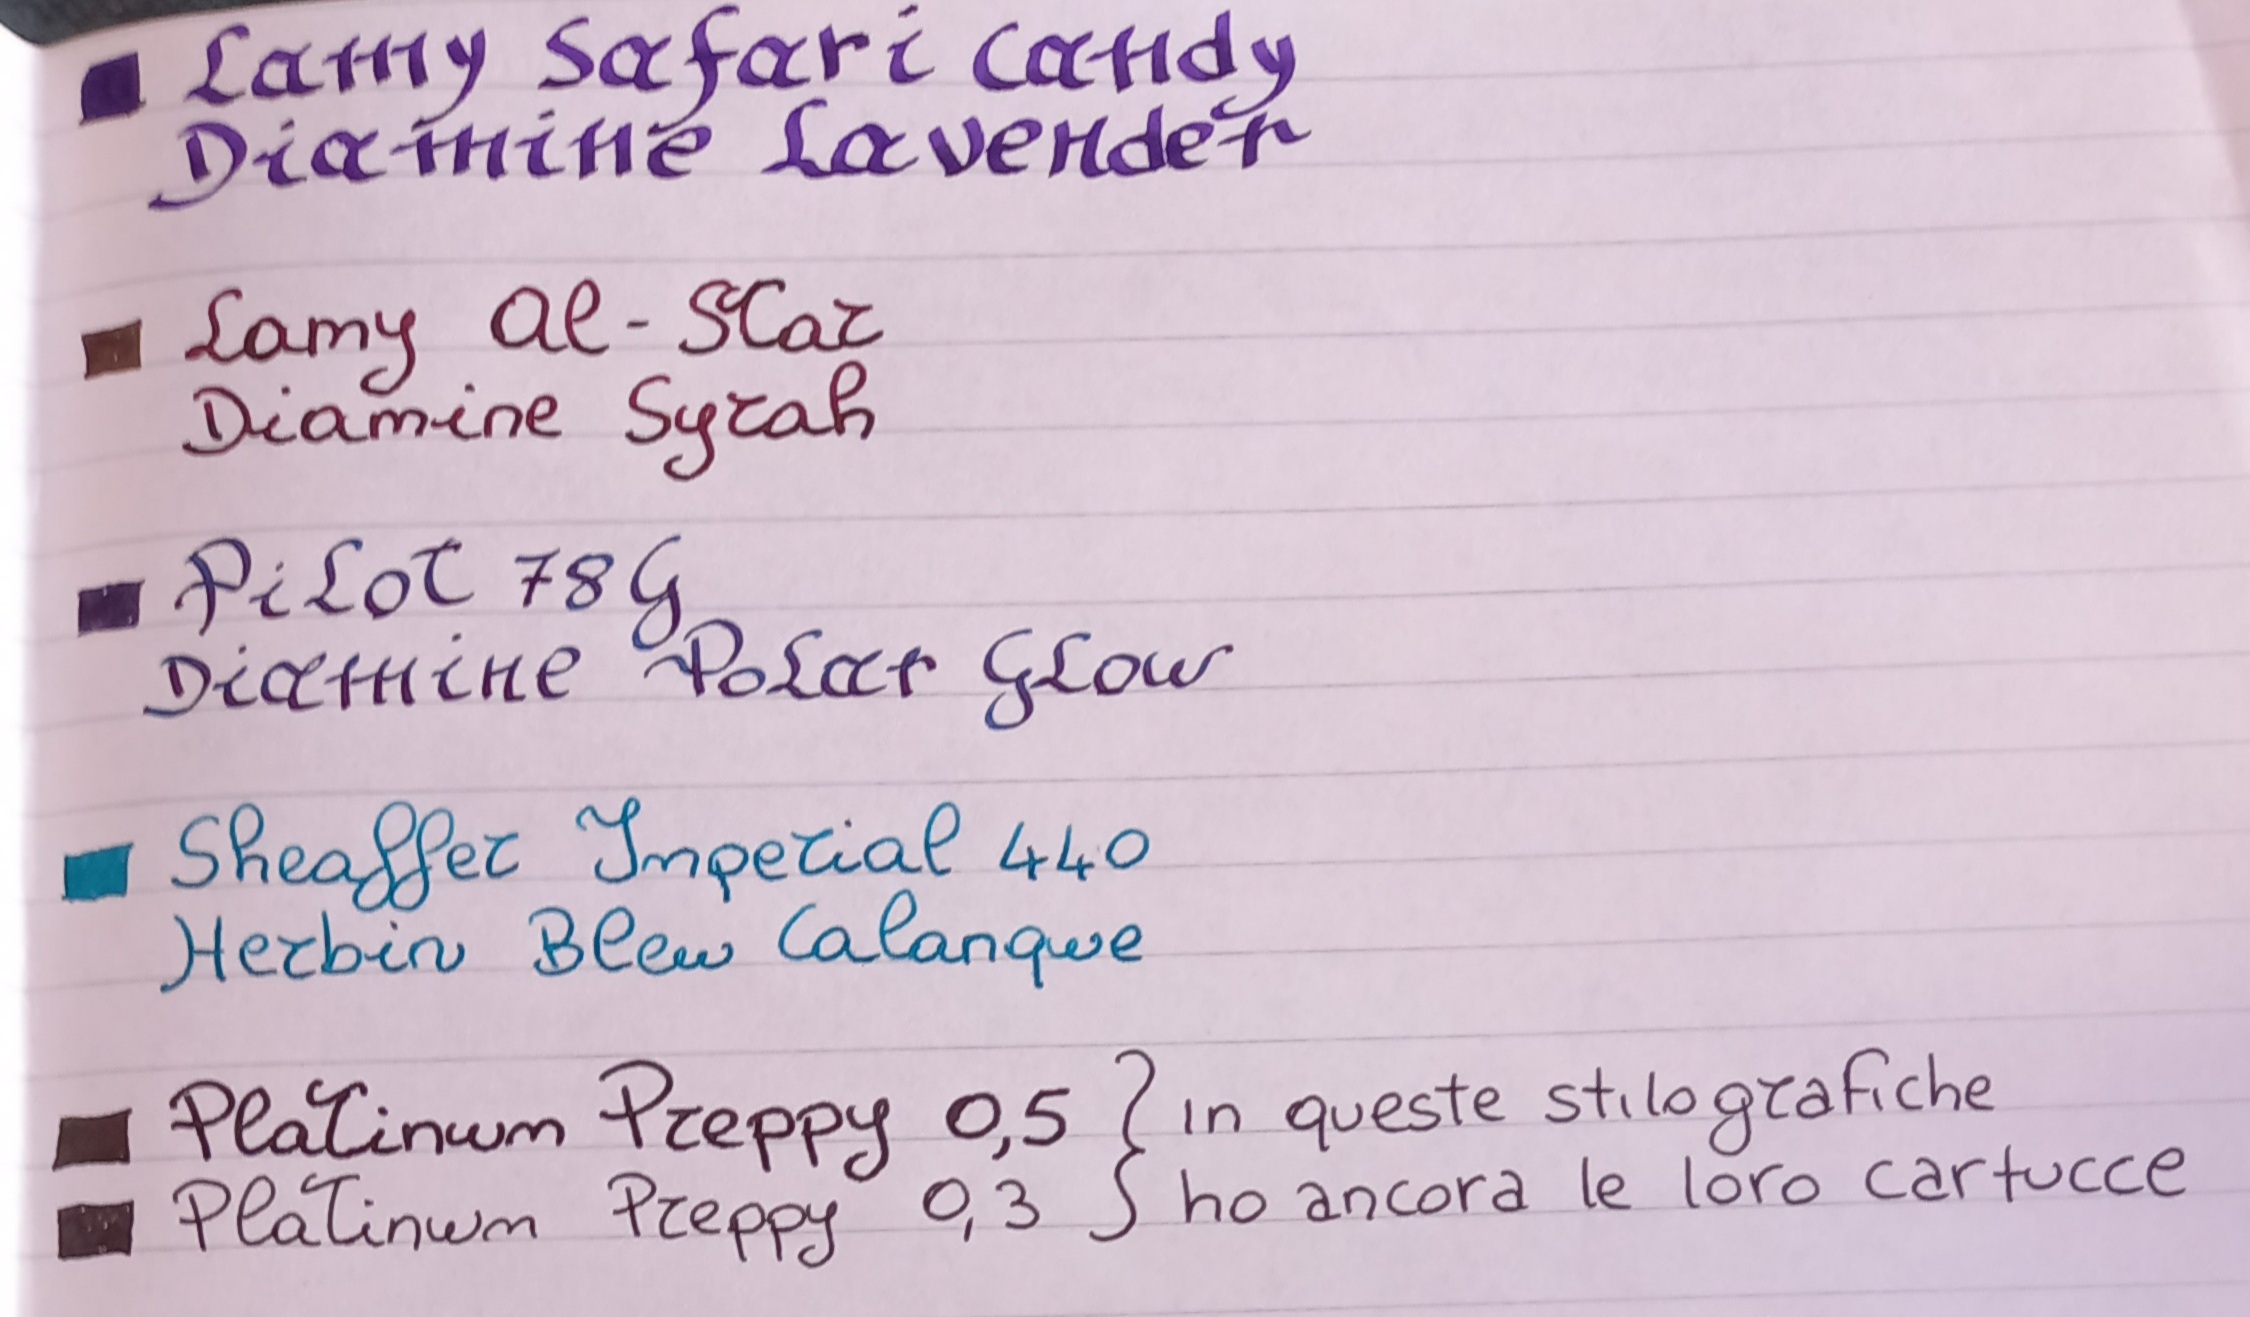 Lamy Safari Candy
Diamine Lavender
Lamy al-Star
Diamine Syrah
Pilot 78G
Diamine Polar Glow
Sheaffer Imperial 440
Herbin Bleu Calanque
Platinum Preppy 0,5 } in queste stilografiche
Platinum Preppy 0,3 } ho ancora le loro cartucce